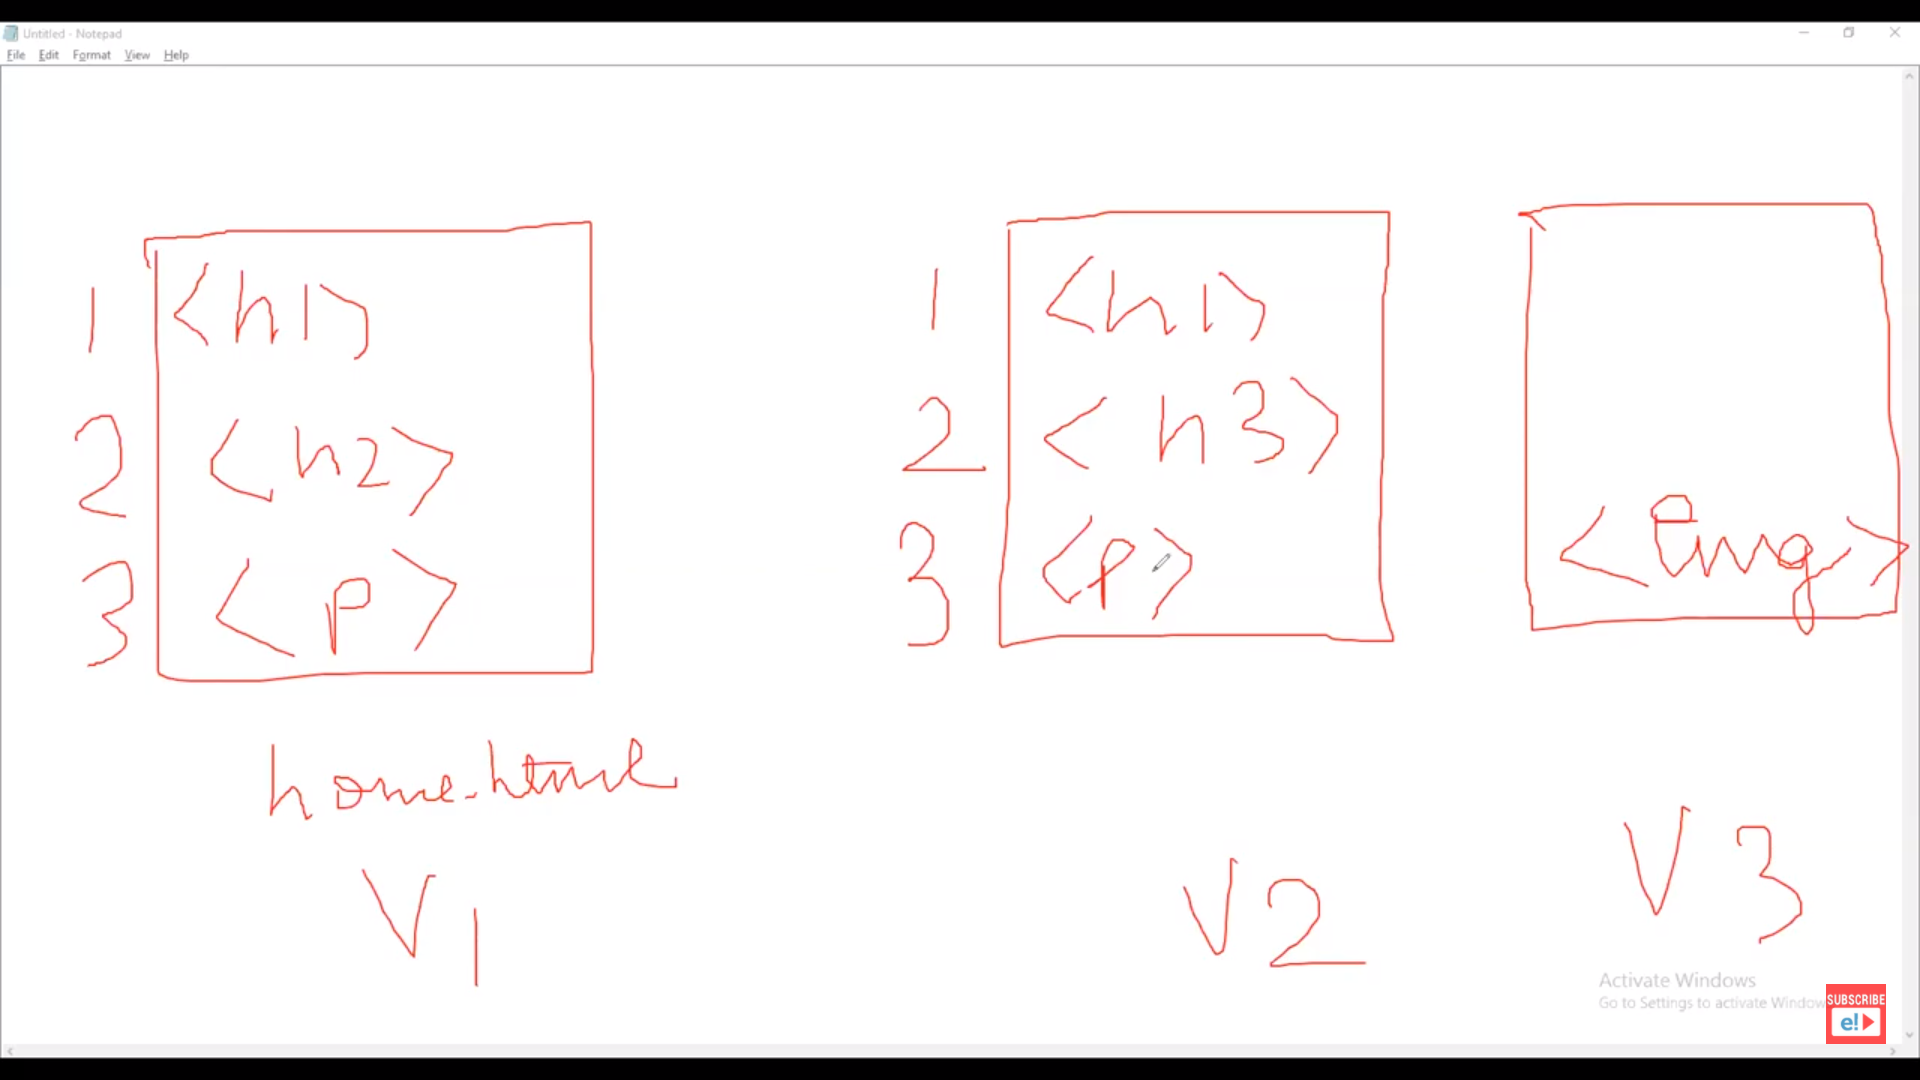 Untitled - Notepad
File Edit Format View Help
1 <h1>
2 <h2>
3 <p>
home.html
V1
1 <h1>
2 <h3>
3 <p>
V2
<img>
V3
Activate Windows
Go to Settings to activate Window
SUBSCRIBE
e!